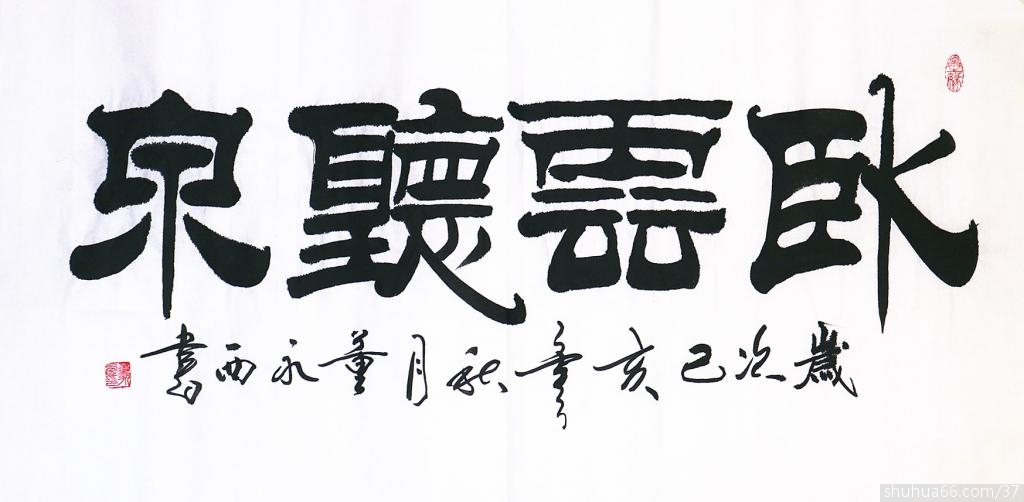 卧雲聽泉
歲次己亥年秋月董永西書
shuhua66.com/37